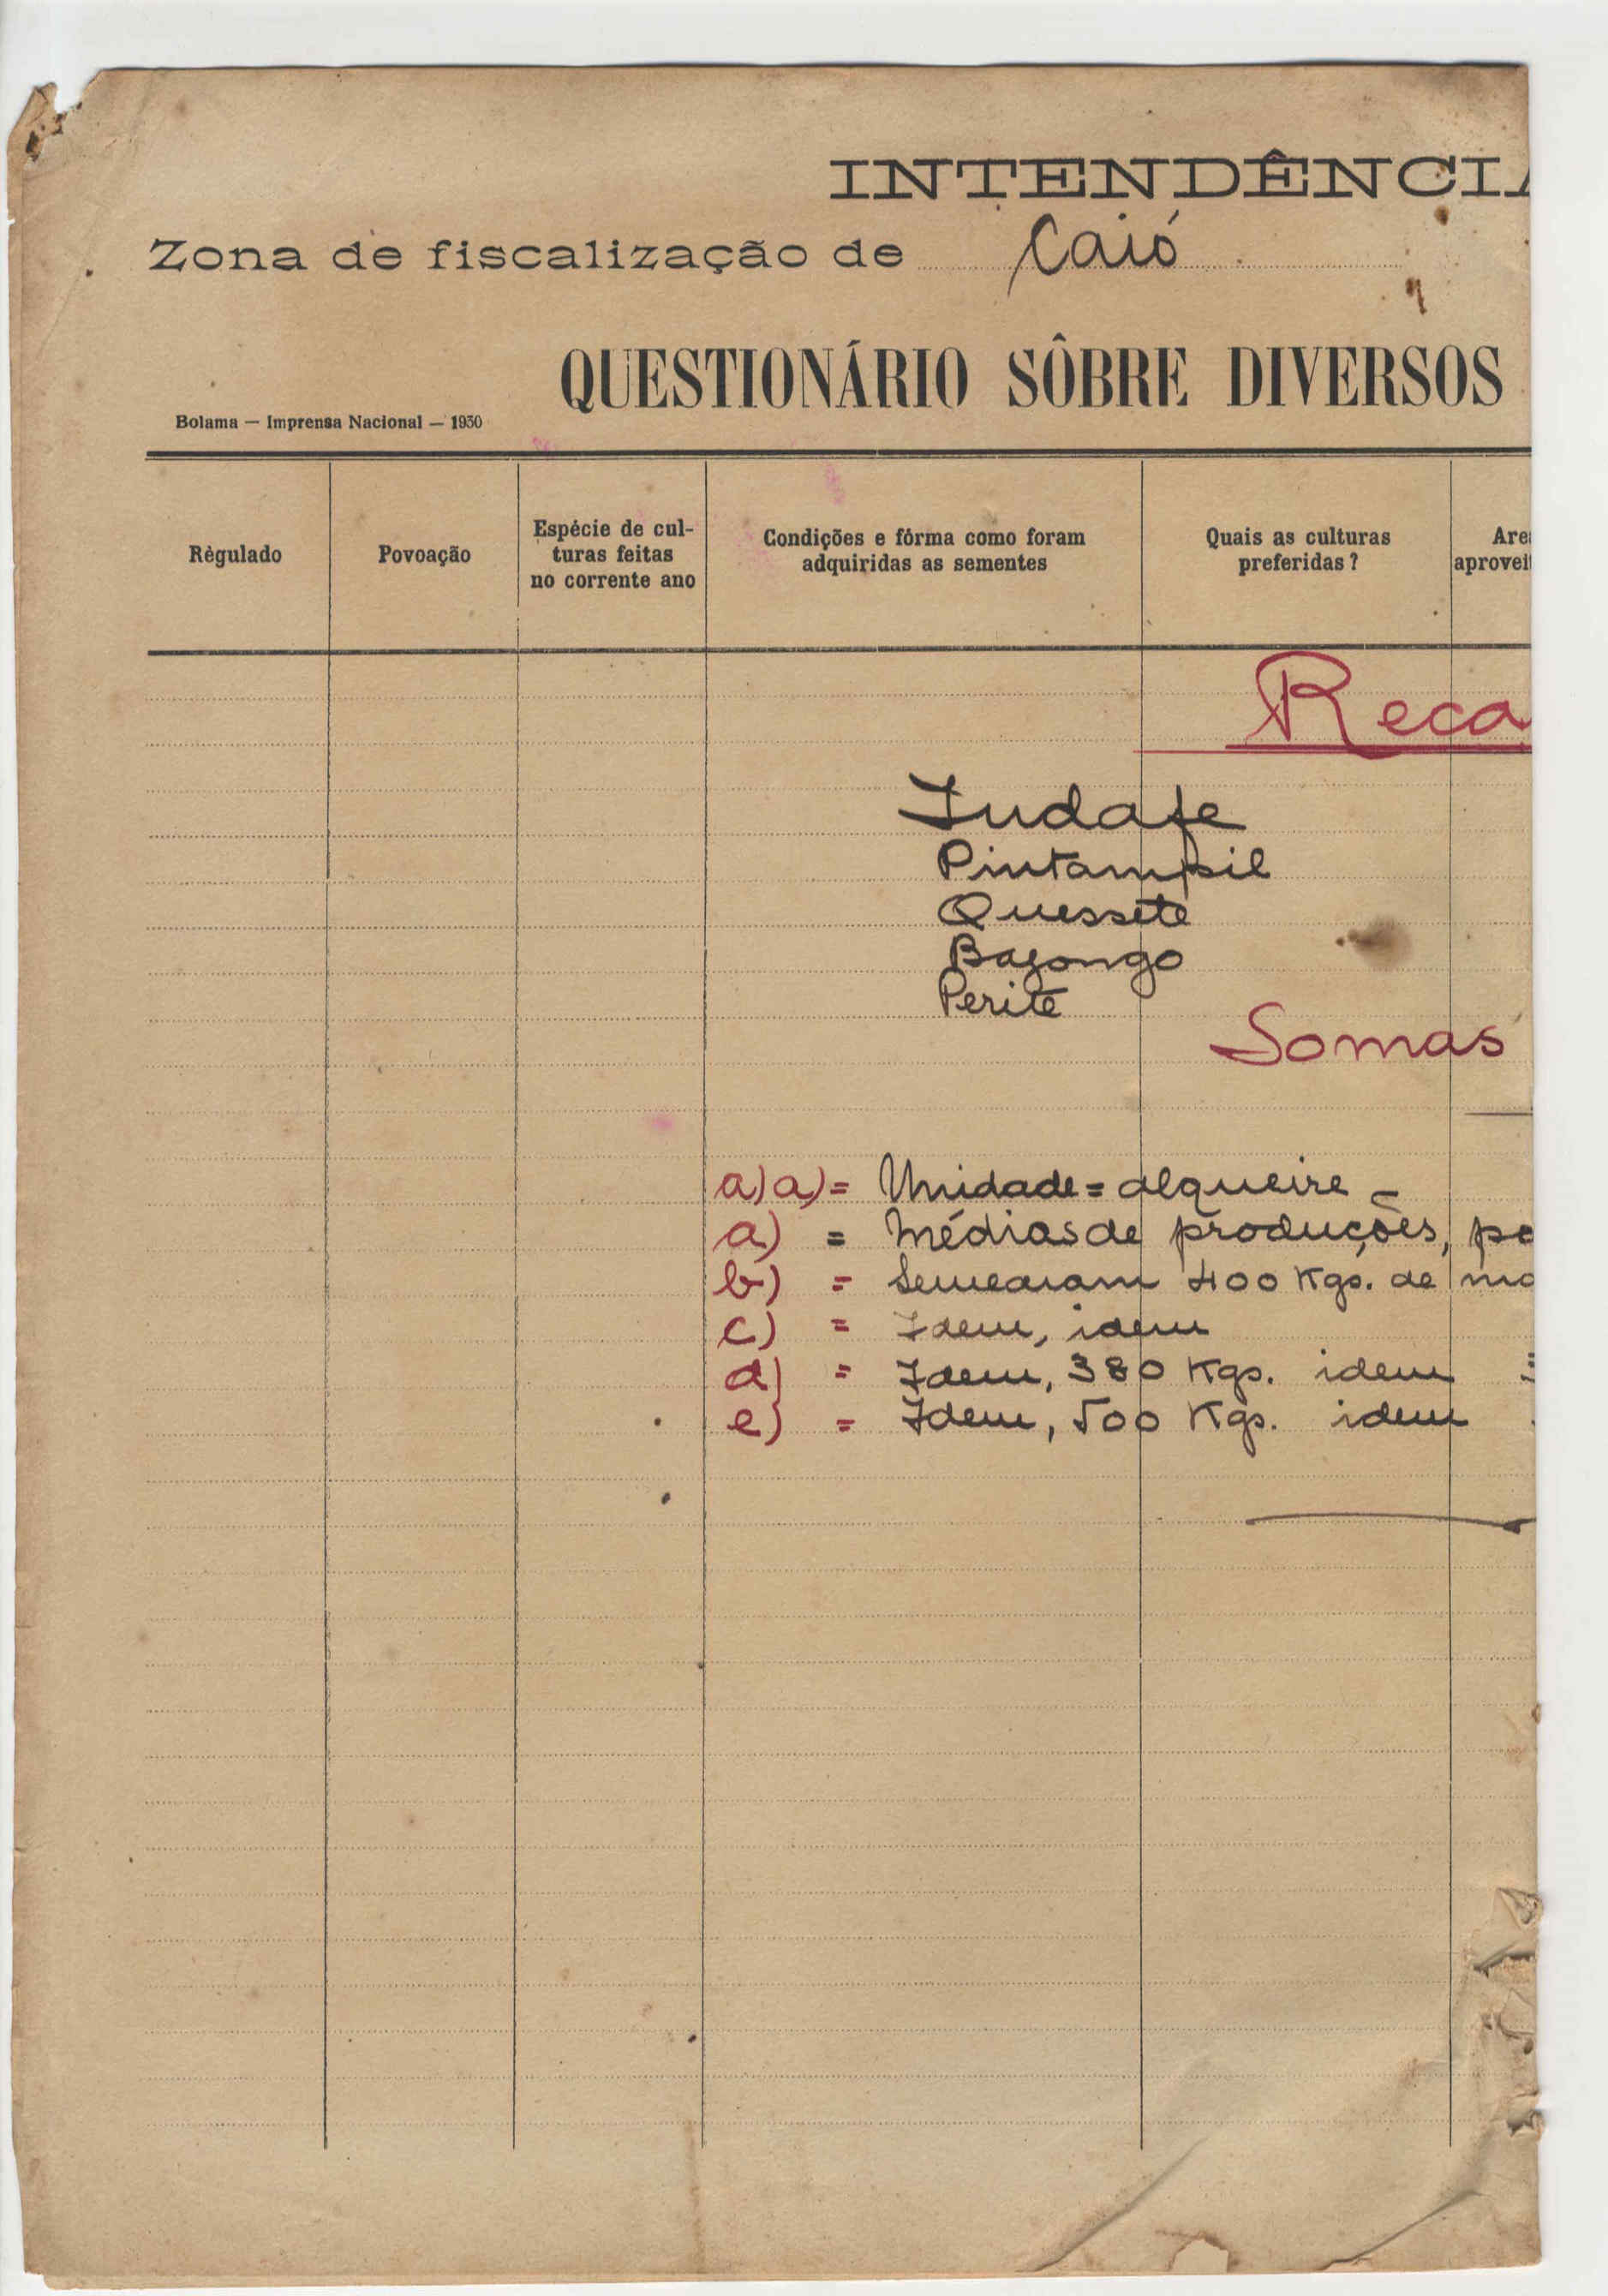 INTENDÊNCIA
Zona de fiscalização de Caió
QUESTIONÁRIO SÔBRE DIVERSOS
Bolama — Imprensa Nacional — 1930
Règulado
Povoação
Espécie de cul-
turas feitas
no corrente ano
Condições e fórma como foram
adquiridas as sementes
Quais as culturas
preferidas?
Are
aprovei
Reca
Indafe
Pintampil
Quessete
Bajongo
Perite
Somas
a) a) = Unidade = alqueire
a) = Médias de produções, po
b) = Semearam 400 Kgs. de
c) = Idem, idem
d) = Idem, 380 Kgs. idem
e) = Idem, 500 Kgs. idem